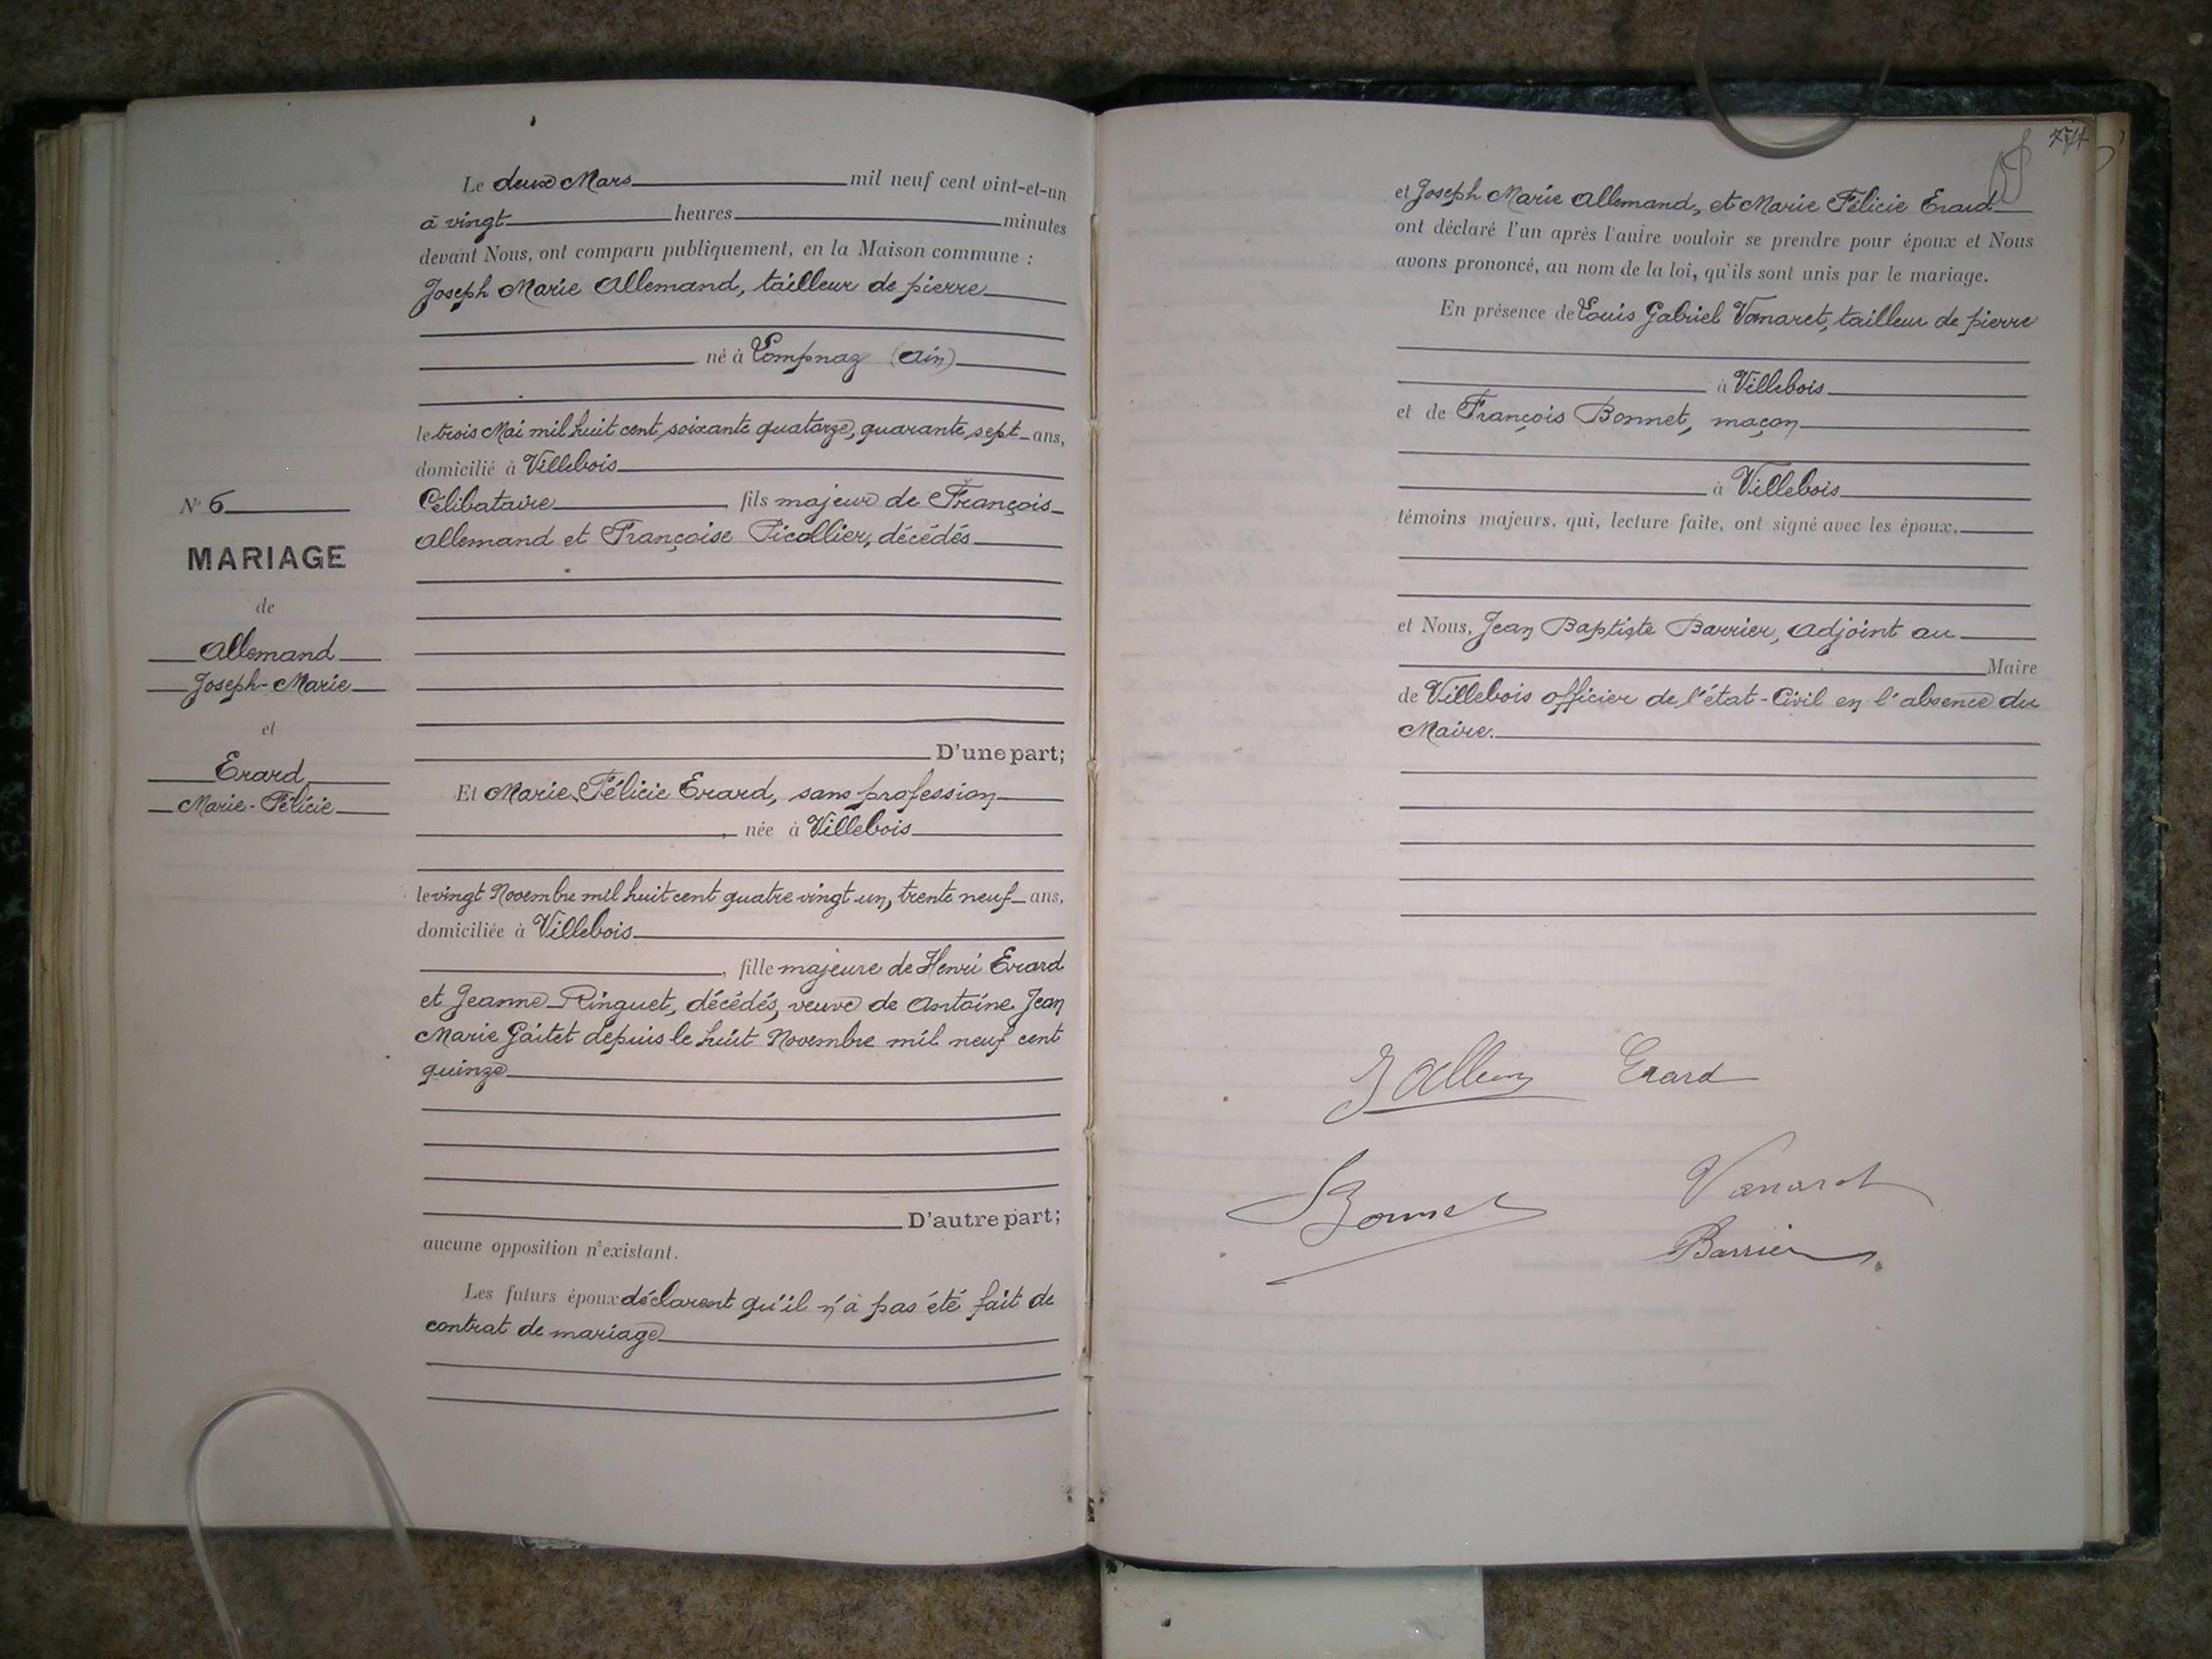 Le deux Mars mil neuf cent vint-et-un
à vingt heures minutes
devant Nous, ont comparu publiquement, en la Maison commune :
Joseph Marie Allemand, tailleur de pierre
né à Lompnaz (Ain)
le trois Mai mil huit cent soixante quatorze, quarante sept ans,
domicilié à Villebois
Célibataire fils majeur de François
Allemand et Françoise Picollier, décédés
N° 6
MARIAGE
de
Allemand
Joseph-Marie
et
Erard
Marie-Félicie
D'une part;
Et Marie Félicie Erard, sans profession
, née à Villebois
le vingt Novembre mil huit cent quatre vingt un, trente neuf ans,
domiciliée à Villebois
, fille majeure de Henri Erard
et Jeanne Ringuet, décédés, veuve de Antoine Jean
Marie Gaitet depuis le huit Novembre mil neuf cent
quinze
D'autre part;
aucune opposition n'existant.
Les futurs époux déclarent qu'il n'a pas été fait de
contrat de mariage
274
et Joseph Marie Allemand, et Marie Félicie Erard
ont déclaré l'un après l'autre vouloir se prendre pour époux et Nous
avons prononcé, au nom de la loi, qu'ils sont unis par le mariage.
En présence de Louis Gabriel Vanaret, tailleur de pierre
à Villebois
et de François Bonnet, maçon
à Villebois
témoins majeurs, qui, lecture faite, ont signé avec les époux,
et Nous, Jean Baptiste Barrier, Adjoint au
Maire
de Villebois officier de l'état-Civil en l'absence du
Maire.
Erard
Bonnet
Vanaret
Barrier